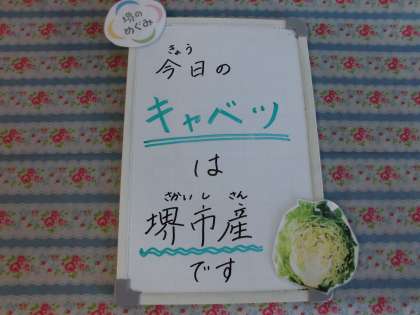 堺の
めぐみ
きょう
今日の
キャベツ
は
さかいし さん
堺市産
です